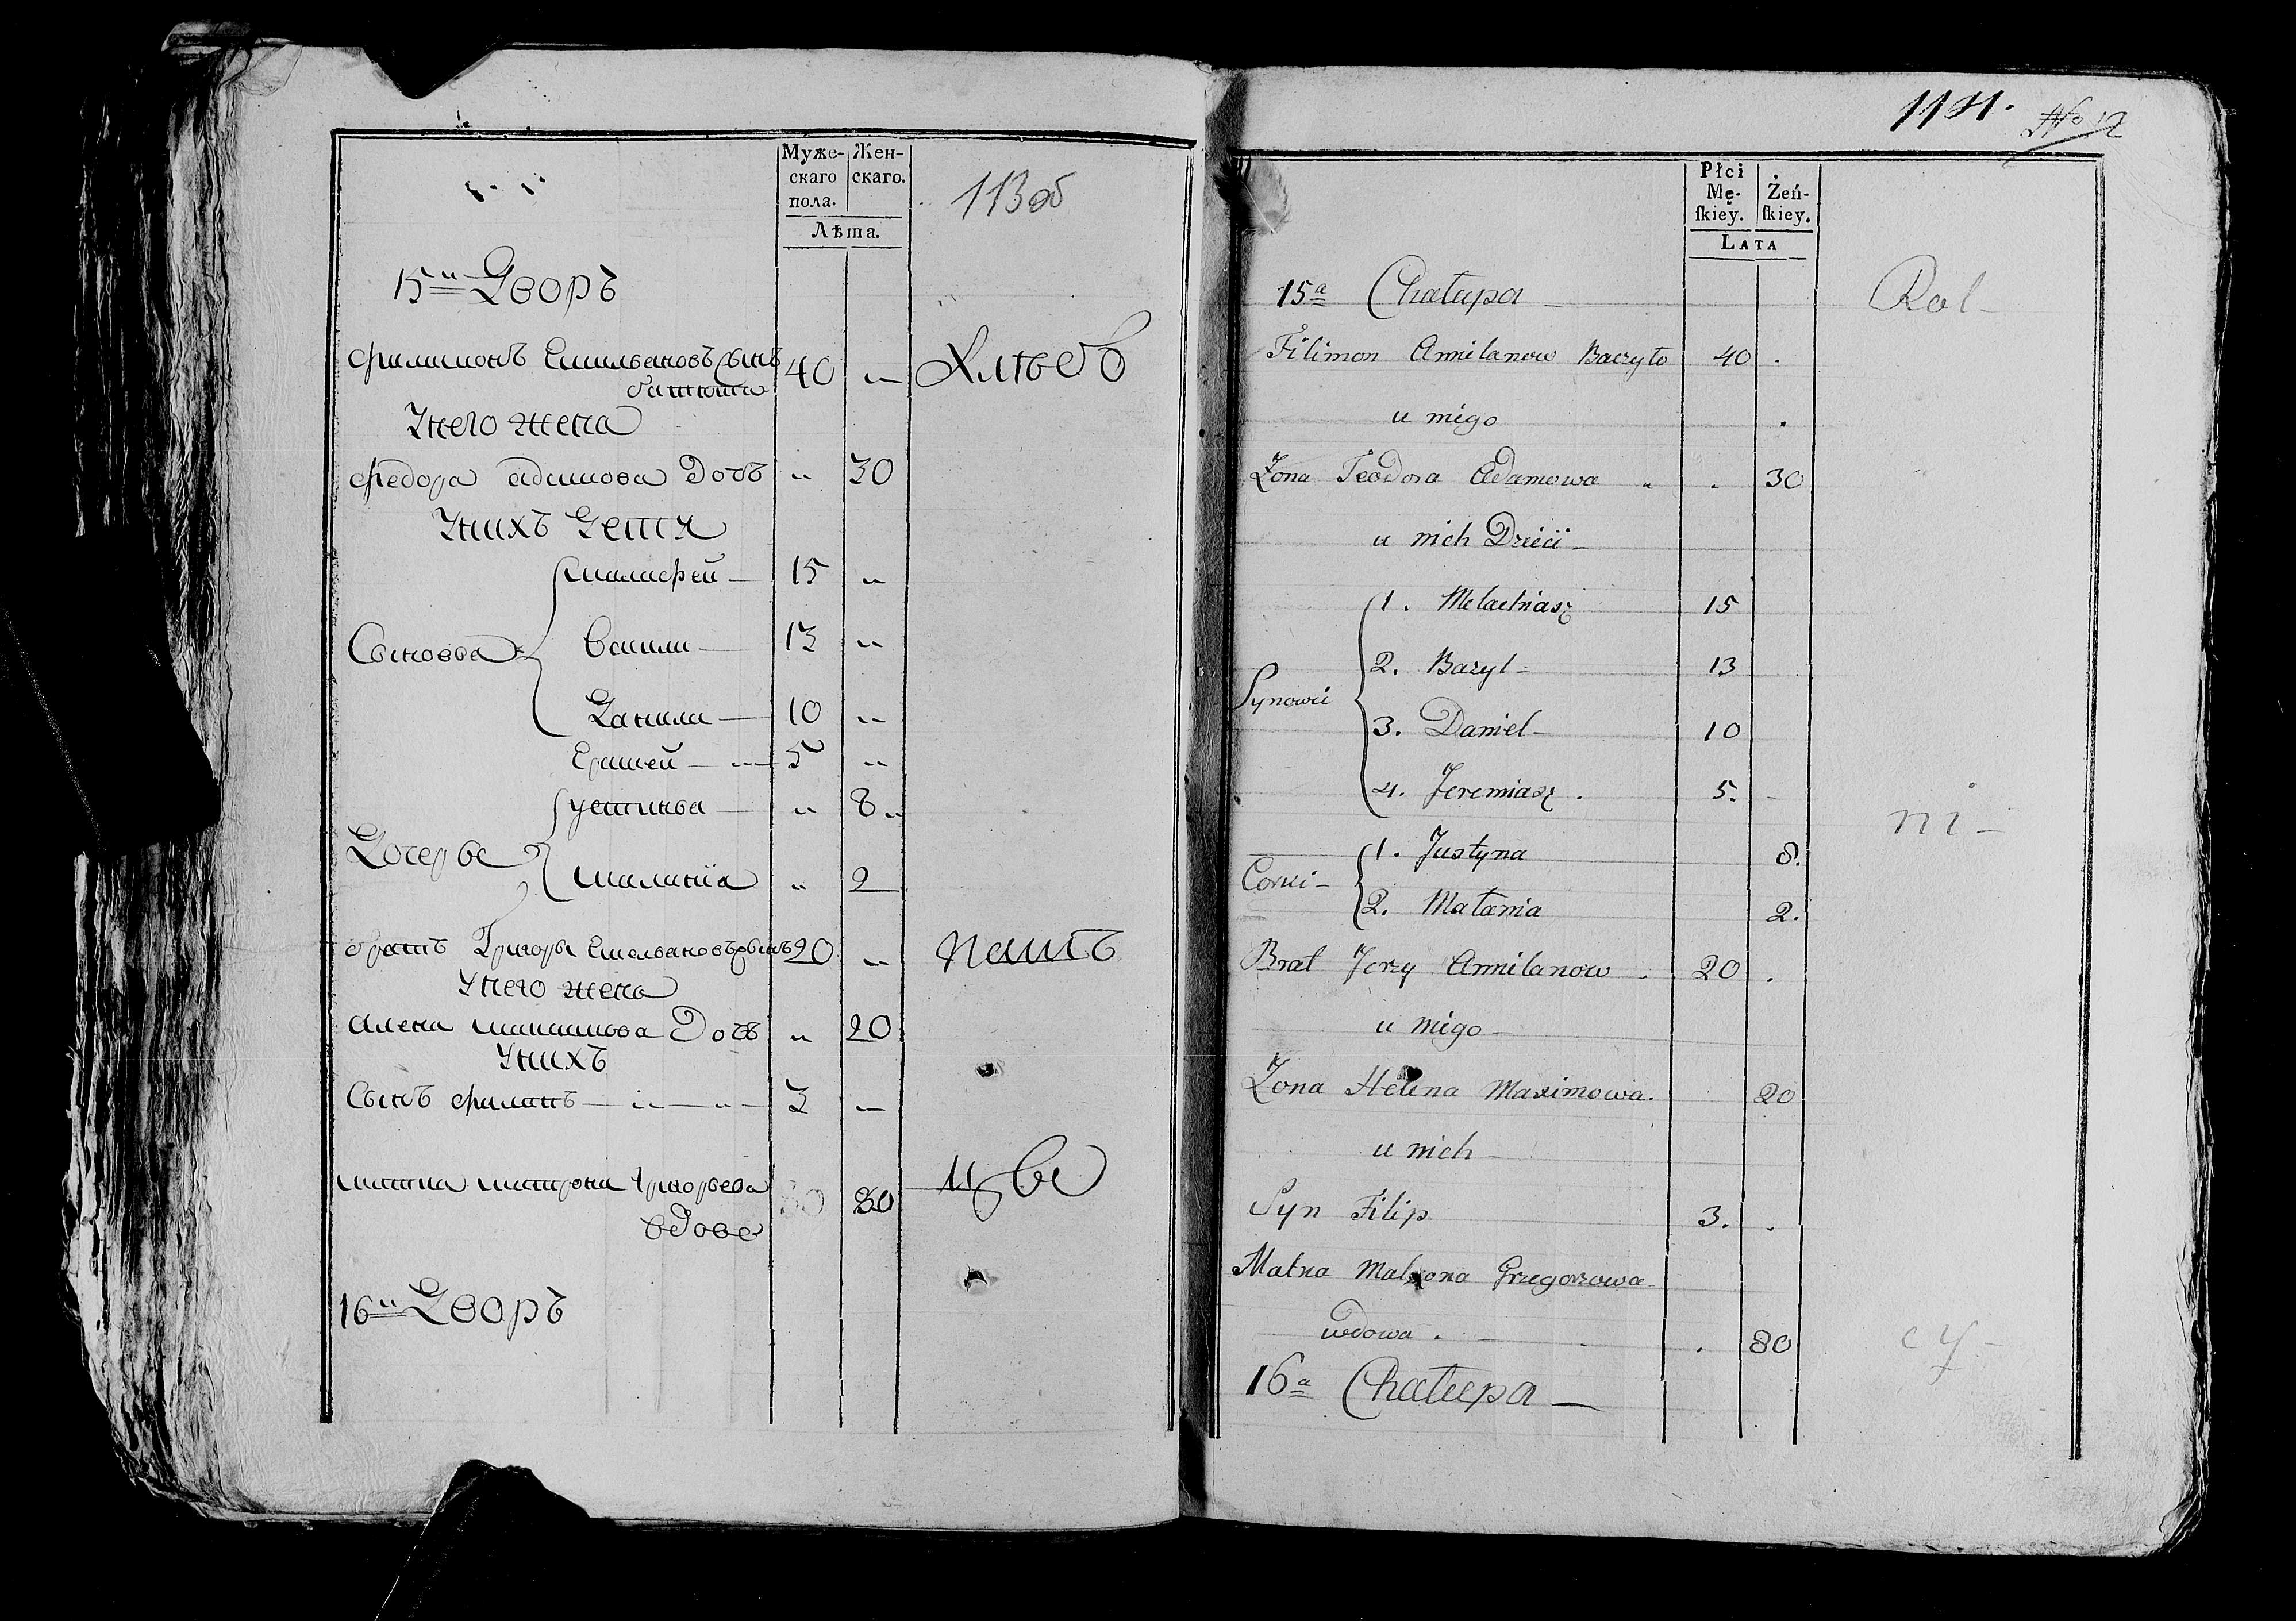 Муже-
скаго
пола.
Жен-
скаго.
Лѣта.
113об
15й Дворъ
Филимонъ Емильеновъ сынъ 40 „ Хлѣбо
У него жена
Федора адамова Дочь „ 30
У нихъ Дети
Сыновья
Малафей — 15 „
Васили — 13 „
Данила — 10 „
Ерамей — „ — 5 „
Дочерье
устинья — „ 8 „
маланiа „ 2
братъ Григори Емельеновъ сынъ 20 „ пашъ
У него жена
алена макъсимова Дочь „ 20
У нихъ
Сынъ филипъ — „ — „ — 3 —
матка матрона Григорьева 80
вдова
16й Дворъ
114.
No 12
Płci
Mę-
ſkiey.
Żeń-
ſkiey.
LATA
15a Chałupa — Rol-
Filimon Amilanow Baczyło 40 .
u niego .
Zona Teodora Adamowa „ . 30
u nich Dzieci —
Synowii
1. Melachiasz 15
2. Bazyl 13
3. Daniel 10
4. Jeremiasz . 5.
ni-
Corki —
1. Justyna 8.
2. Małania 2.
Brat Jerzy Amilanow . 20 .
u niego —
Zona Helena Maximowa. 20
u nich —
Syn Filip 3. .
Matka Matrona Grzegorzowa
wdowa . . 80
cy-
16a Chałupa —